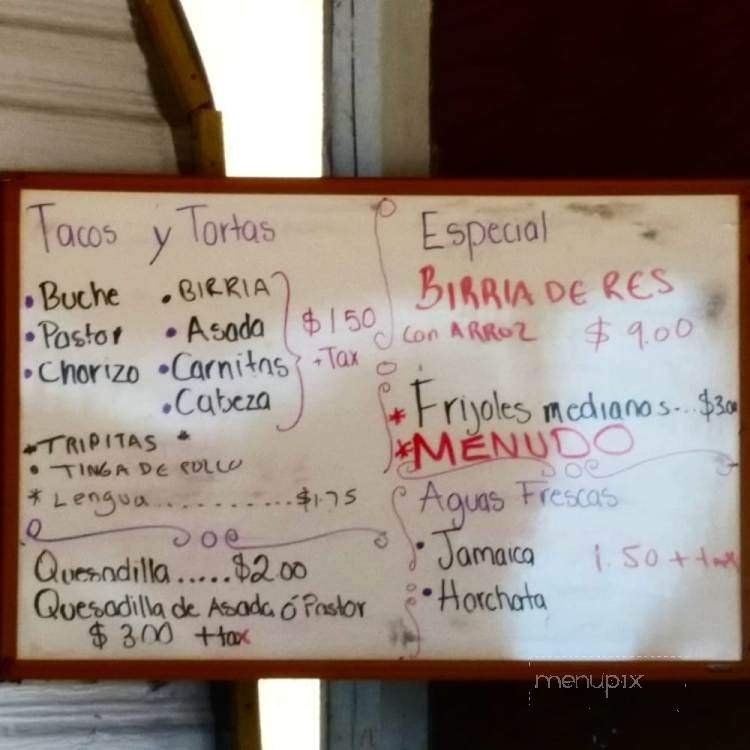 Tacos y Tortas
• Buche • BIRRIA
• Pastor • Asada
• Chorizo • Carnitas
• Cabeza
$1.50
+Tax
*TRIPITAS *
• TINGA DE POLLO
* Lengua..........$1.75
Quesadilla.....$2.00
Quesadilla de Asada ó Pastor
$3.00 +tax
Especial
BIRRIA DE RES
con ARROZ $9.00
* Frijoles medianos...$3.00
*MENUDO
Aguas Frescas
• Jamaica 1.50 + tax
• Horchata
menupix